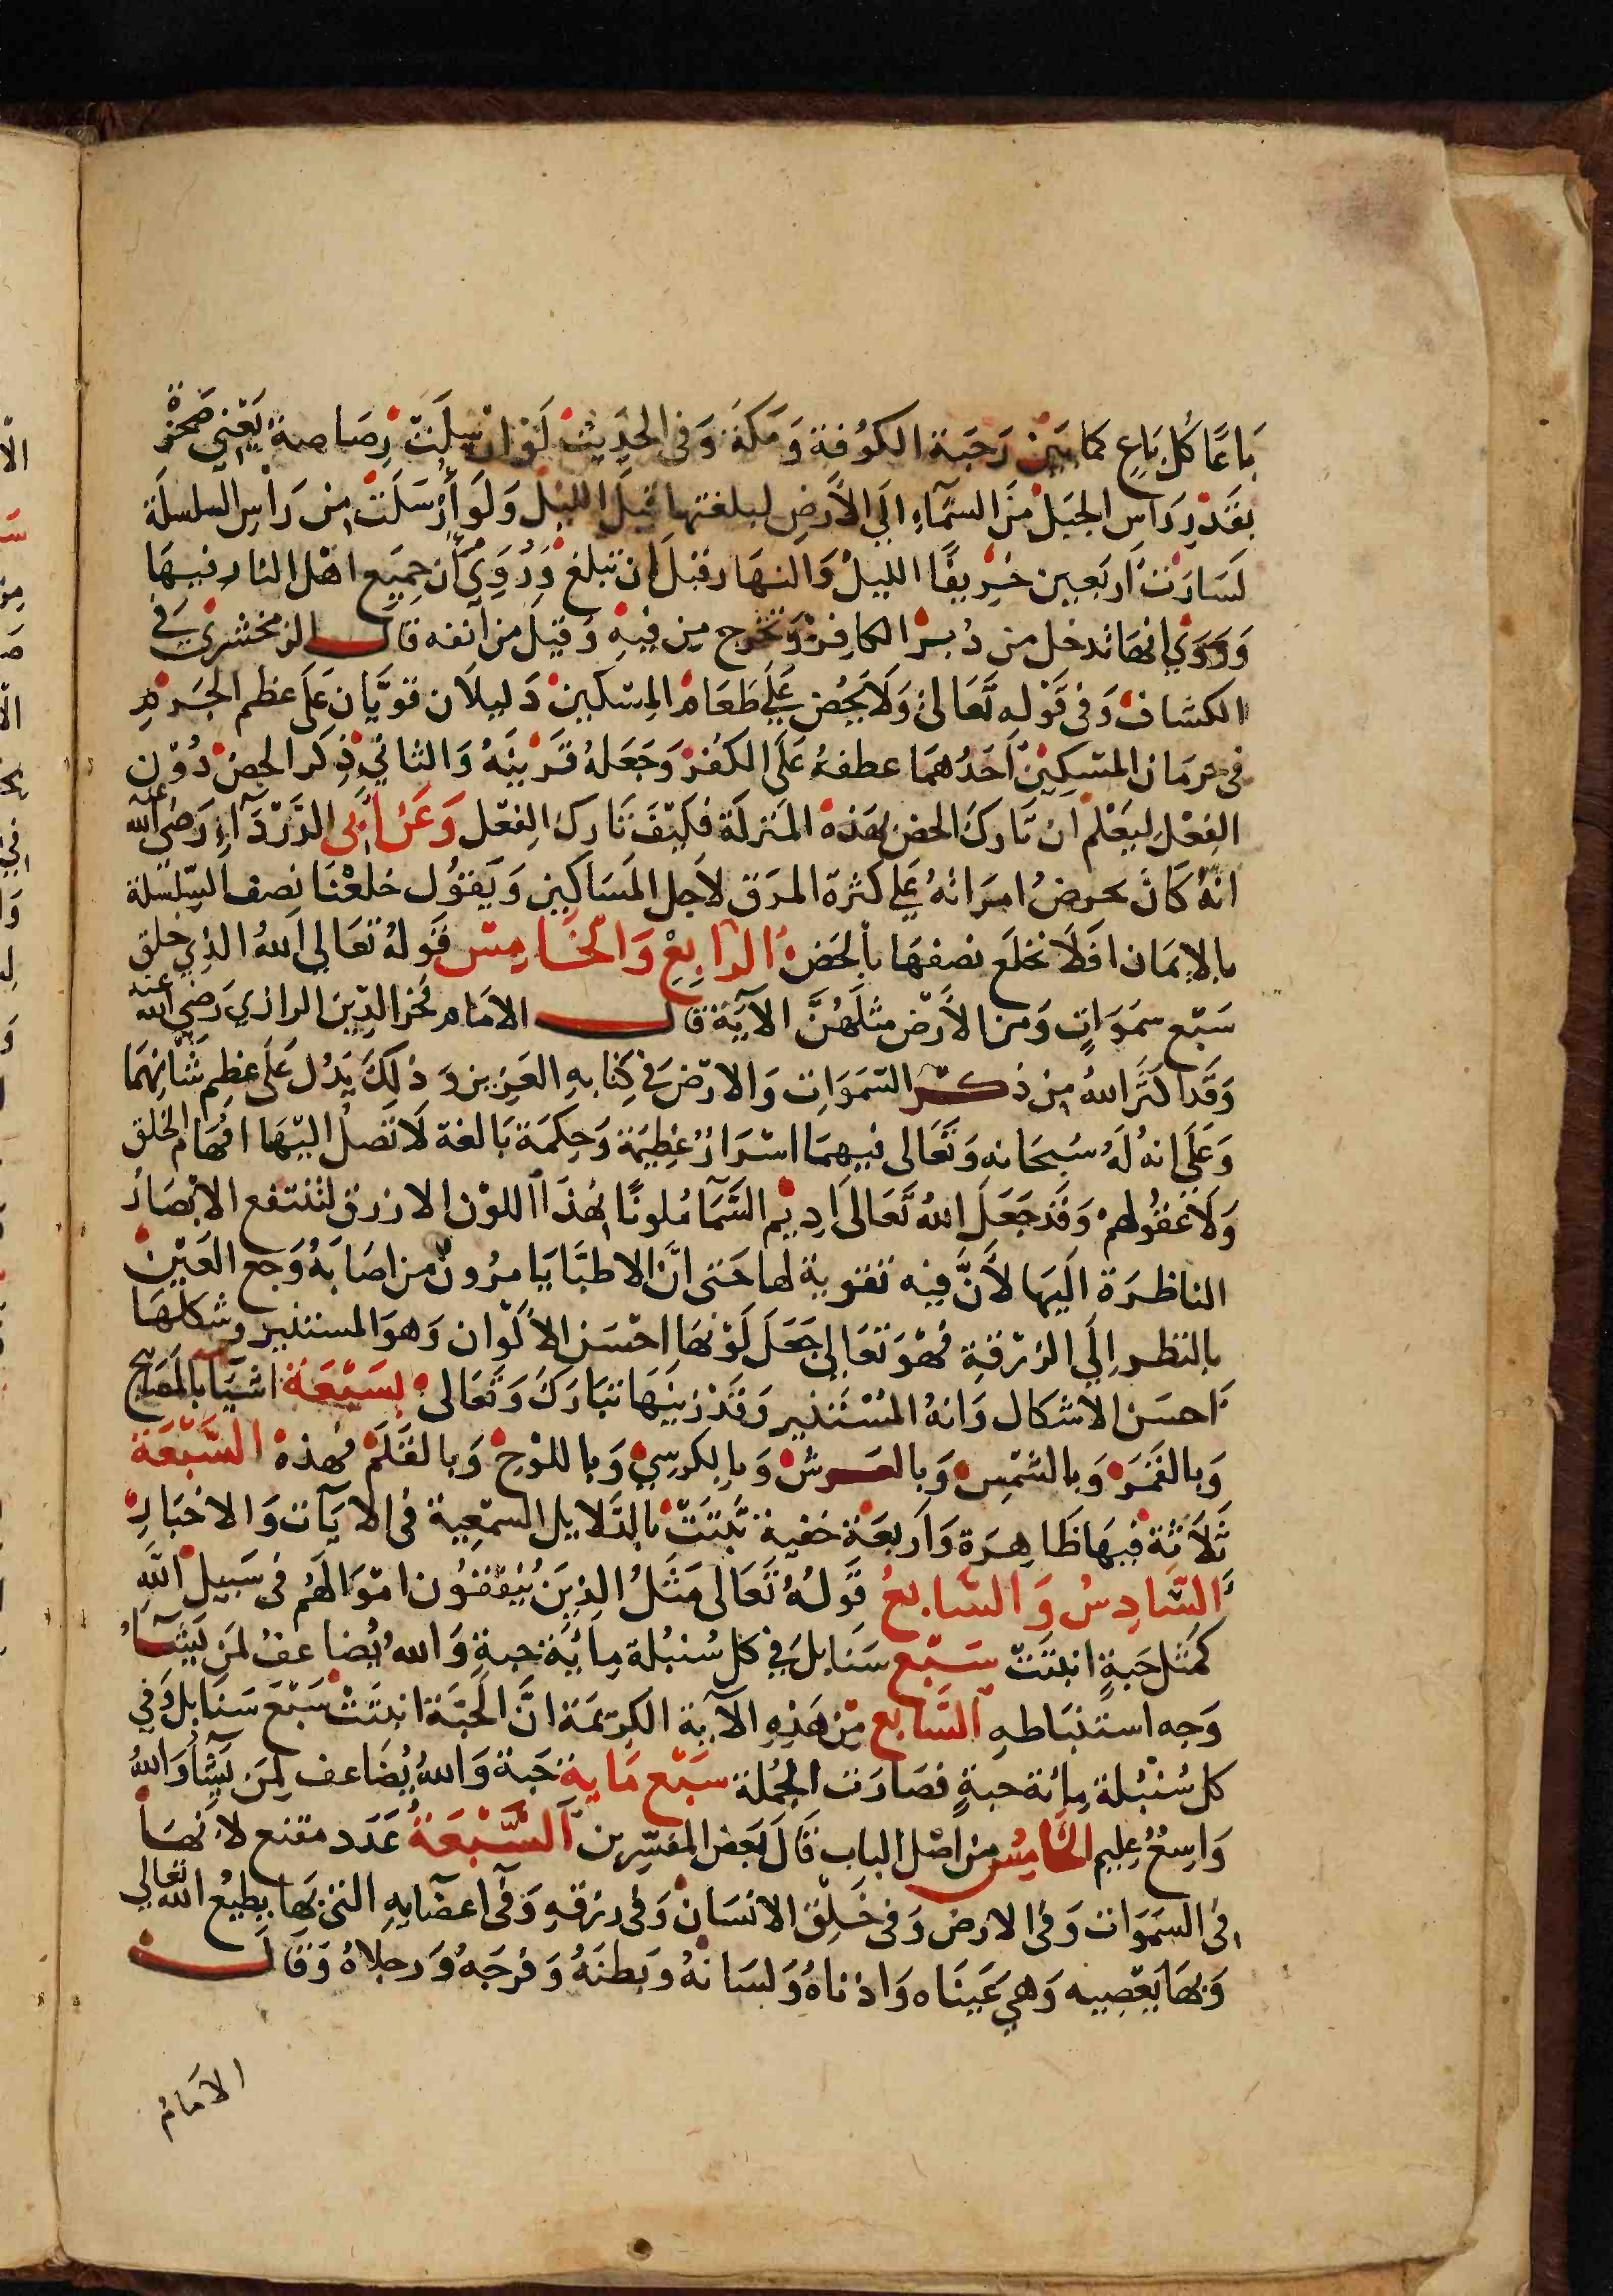 بَاعًا كُل بَاعٍ كما بين رَحَبَة الكُوفة وَمَكة وَفي الحَدِيث لَوْ ارْسِلَتْ رِصَاصة يَعْني صَخرَةْ
بقَدْرِ رَاس الجبَل مِنَ السَّمَآءِ اِلَي الاَرضِ لبلغتها قبلَ الليل وَلَو أُرْسَلَتْ مِن رَاسِ السلسلَة
لَسَارَت اَربَعين خَرِيفًا الليلْ وَالنهَار قبلَ ان تبلغ وَرُوِيَ أن جَمِيَع اهْل النار فيهَا
وَرُوِيَ انهَا تدخل من دُبرْ الكافِرْ وَتخرج مِن فِيهِ وَقيلَ من آنفه قال الزمخشري في
الكشاف وَفي قَوله تعَالىْ وَلَا يَحُض عَلَي طَعَامْ المِسْكين دَليلاَن قوِيَّان عَلَى عظم الجَرْمِ
في حرمَان المسْكِيْنْ اَحَدُهمَا عطفهُ عَلَى الكُفرْ وَجَعَلهُ قَرْينَهُ وَالثاني ذِكر الحض دُوْن
الفِعْل ليعْلَمْ ان تَارك الحض بهَذه المَنزلَة فكَيْفَ تَارك الفِعْل وَعَنْ أَبي الدَّرْدَآءِ رَضي الله عنه
انهُ كَانَ يحرضُ امرَاتهُ عَلي كثرة المرَق لاَجل المَسَاكِين وَيَقوُل خلعْنَا نصف السِّلسلة
بالاِيمَان افَلَا نخلَع نصفهَا بالحَض الرَابِعْ وَالخَامِسْ قَولهُ تعَالي اَللهُ الذِي خلق
سَبْع سَمَوَاتٍ وَمن الاَرْض مثلَهُنَّ الآيَة قال الامَام فخر الدِّين الرازي رَضي الله عنه
وَقَد اكثَر اللهُ مِن ذكْر السَّمَوَات وَالارْض في كِتابهِ العَزيز وَذلِكَ يَدُل عَلَى عِظِم شَانِهمَا
وَعَلَى انهُ لَهُ سُبحَانه وَتعَالى فيهمَا اسْرَارْ عَظِيمَة وَحِكمَة بَالغة لَا تَصلُ اليْهَا افهَام الخلق
وَلَا عُقُولهمْ وَقَد جَعَلَ اللهُ تعَالَى اَدِيْم السَّمَآ مُلونًا بهَذَا اللوْن الازرق لتنتفع الابْصَارُ
الناظرَة اليهَا لاَنَّ فيه تقوية لها حَتى انَّ الاطبَّا يَامرُونْ من اصَابَهُ وَجع العَيْن
بالنظر اِلَي الزرْقة فهْوَ تعَالى جَعَلَ لَوْنهَا احْسَن الاَلْوان وَهوَ المستنير وشكلهَا
اَحسَن الاشكال وَانهُ المُسْتَدير وَقَدْ زينَهَا تبَارَكَ وَتعَالى بسَبْعَة اشيَا بالمصابيح
وَبالقمَرْ وَبالشمْسِ وَبالعَرشْ وَبالكرسِي وَباللوْحْ وَبالقَلَمْ فهذه السَّبْعَة
ثَلاَثة فيهَا ظَاهِرَة وَاَربعَة خفية ثبتَتْ بالدَّلايل السمْعِية في الايَات وَالاخبَارْ
السَّادِسُ وَالسَّابعُ قَولُهُ تعَالى مَثَلُ الذِينَ يُنِفقُون امْوَالَهُم في سَبيل اللهِ
كمَثل حَبةٍ انبتَتْ سَبْع سَنَابلَ في كل سُنبُلة مِايَة حبةٍ وَاللهُ يُضاعفُ لمَن يَشَآءُ
وَجه استنبَاطه السَّابع مِن هَذِهِ الآية الكرِيمَة انَّ الحَبَّة انبتَتْ سَبْعَ سَنَابلَ وَفي
كل سُنْبلة مِائة حبةٍ فصَارَت الجُملة سَبْع مَاية حَبة وَاللهُ يُضَاعف لِمَن يَشَآُ وَاللهُ
وَاسِعُ عليم الخَامِسُ من اصْل الباب قَالَ بَعض المفسّرين السَّبْعَةُ عَدَد مقنع لاَنهَا
في السَمَوَات وَفي الارض وَفي خَلْق الانسَانْ وَفي رزقهِ وَفي اعضَايهِ التي بها يطيعُ الله تعالي
وَبهَا يَعْصِيه وَهي عَينَاه وَاذناهُ وَلسَانهُ وبَطنهُ وَفرْجَهُ وَرجلاهُ وَقَال
الامام